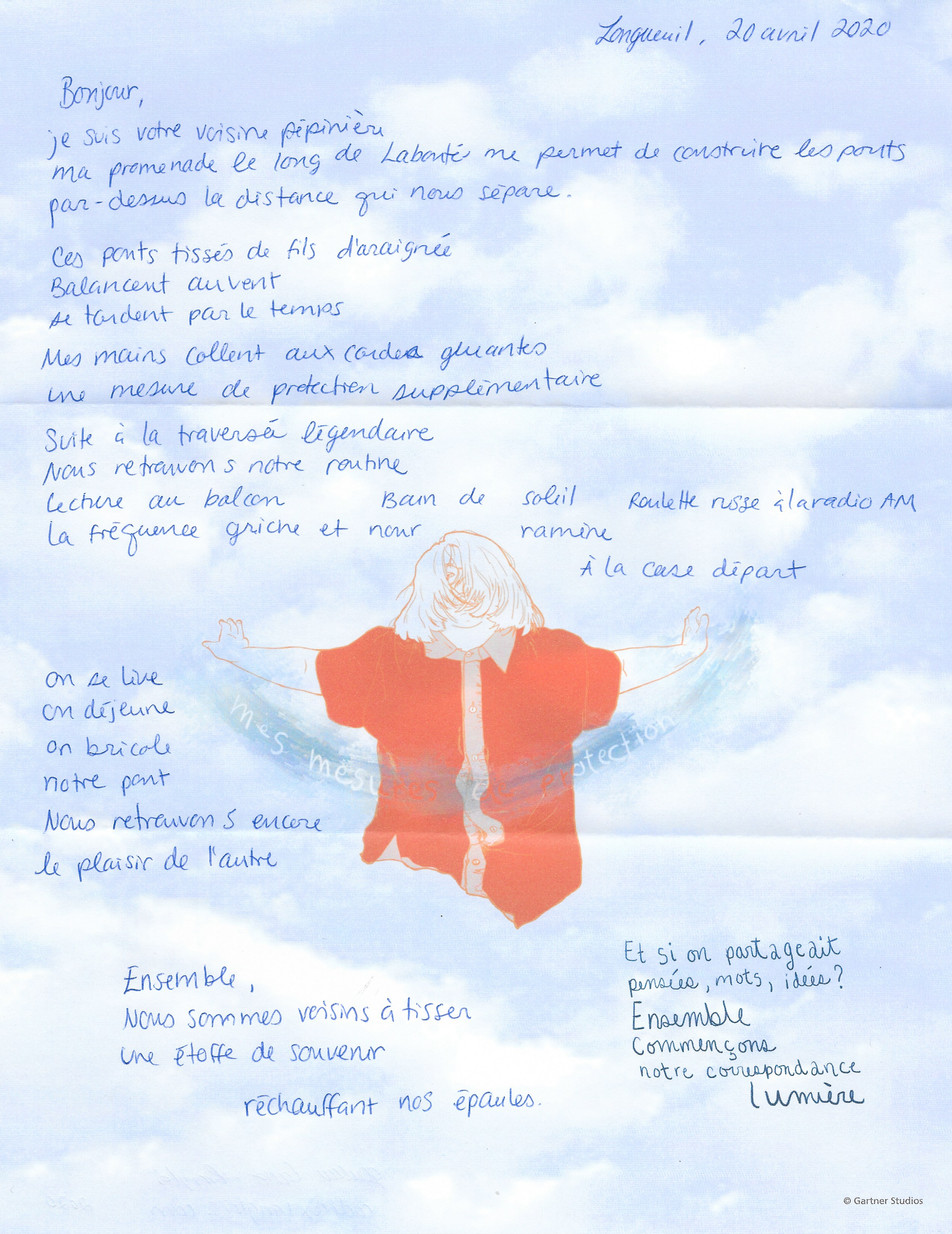 Longueuil, 20 avril 2020
Bonjour,
je suis votre voisine pépinière
ma promenade le long de Labonté me permet de construire les ponts
par-dessus la distance qui nous sépare.
Ces ponts tissés de fils d'araignée
Balancent au vent
se tordent par le temps
Mes mains collent aux cordes gluantes
une mesure de protection supplémentaire
Suite à la traversée légendaire
Nous retrouvons notre routine
lecture au balcon Bain de soleil Roulette russe à la radio AM
la fréquence griche et nous ramène
À la case départ
on se lève
on déjeune
on bricole
notre pont
Nous retrouvons encore
le plaisir de l'autre
mes mesures de protection
Ensemble,
Nous sommes voisins à tisser
une étoffe de souvenir
réchauffant nos épaules.
Et si on partageait
pensées, mots, idées?
Ensemble
Commençons
notre correspondance
lumière
© Gartner Studios